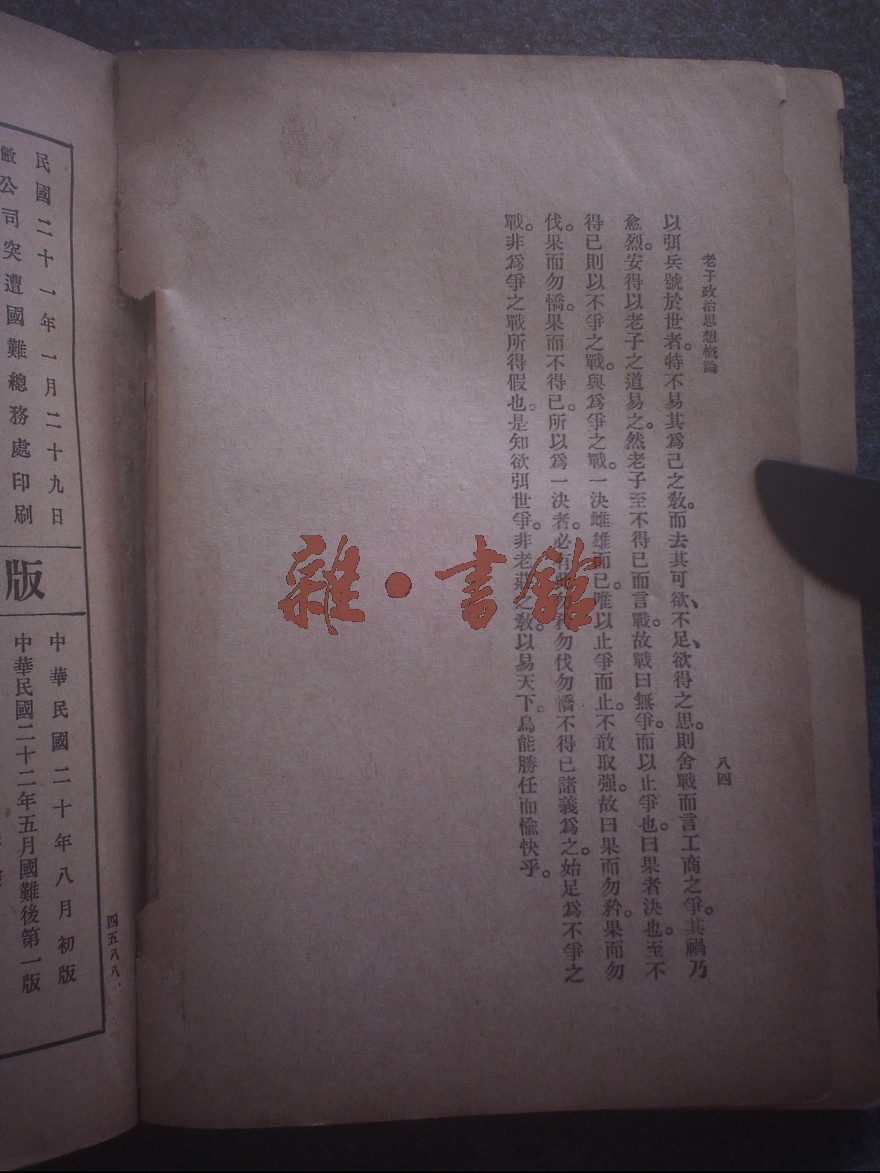 老子政治思想概論
八四
以弭兵號於世者。特不易其爲己之敎。而去其可欲、不足、欲得之思。則舍戰而言工商之爭。其禍乃
愈烈。安得以老子之道易之。然老子至不得已而言戰。故戰曰無爭。而以止爭也。曰果者決也。至不
得已則以不爭之戰。與爲爭之戰。一決雌雄而已。唯以止爭而止。不敢取强。故曰果而勿矜。果而勿
伐。果而勿憍。果而不得已。所以爲一決者。必有勿矜勿伐勿憍不得已諸義爲之。始足爲不爭之
戰。非爲爭之戰所得假也。是知欲弭世爭。非老莊之敎。以易天下。烏能勝任而愉快乎。
民國二十一年一月二十九日
敝公司突遭國難總務處印刷
版
中華民國二十年八月初版
中華民國二十二年五月國難後第一版
四五八八
雜·書館